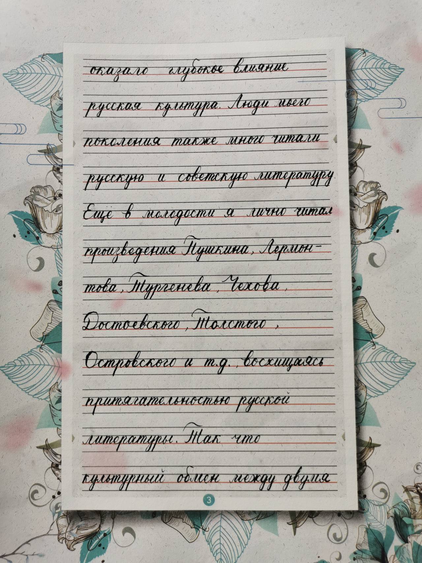 оказало глубокое влияние
русская культура. Люди моего
поколения также много читали
русскую и советскую литературу
Еще в молодости я лично читал
произведения Пушкина, Лермон-
това, Тургенева, Чехова,
Достоевского, Толстого,
Островского и т.д., восхищаясь
притягательностью русской
литературы. Так что
культурный обмен между двумя
3